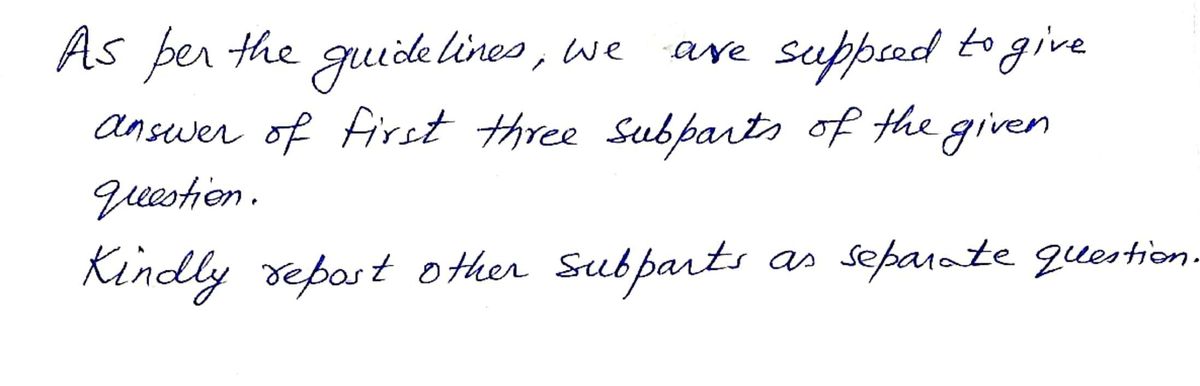 As per the guidelines, we are suppsed to give
answer of first three subparts of the given
question.
Kindly repost other subparts as separate question.